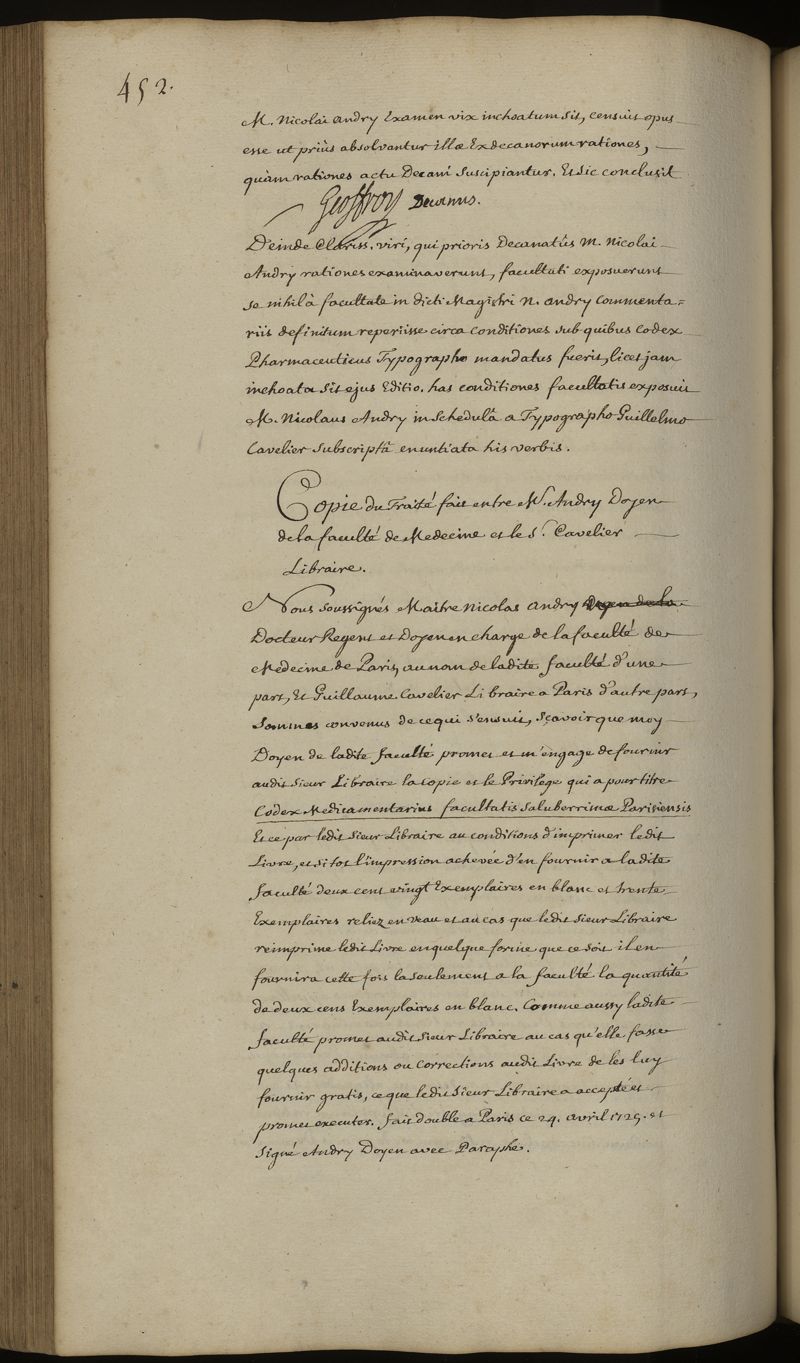 452.
M. Nicolai Andry Examen vix inchoatum sit, censuit opus
esse ut priùs absolvantur illæ Exdecanorum rationes,
quàm rationes actu Decani suscipiantur. Et sic conclusit
Geoffroy Decanus.
Deinde Clariss. viri, qui prioris Decanatûs M. Nicolai
Andry rationes examinaverunt, facultati exposuerunt
se nihil à facultate in dicti Magistri N. Andry commenta=
riis definitum reperiisse circa conditiones sub quibus Codex
Pharmaceuticus Typographo mandatus fuerit, licet jam
inchoata sit ejus Editio. has conditiones facultatis exposuit
M. Nicolaus Andry in Schedulâ a Typographo Guillelmo
Cavelier subscriptâ enuntiata his verbis.
Copie du Traité fait entre M. Andry Doyen
de la faculté de Medecine et le Sr. Cavelier
Libraire.
Nous soussignés Maitre Nicolas Andry Doyen de la
Docteur Regent et Doyen en charge de la faculté de
Medecine de Paris, au nom de ladite faculté d'une
part, Et Guillaume Cavelier Libraire a Paris d'autre part,
Sommes convenus de ce qui s'ensuit, Sçavoir que moy
Doyen de ladite faculté promet et m'engage de fournir
audit Sieur Libraire la copie et le Privilege qui a pour titre
Codex Medicamentarius facultatis saluberrimæ Parisiensis
Et ce par ledit Sieur Libraire au conditions d'imprimer ledit
Livre, et si tot l'impression achevée d'en fournir a ladite
faculté deux cent vingt Exemplaires en blanc et trente
Exemplaires reliez en veau et au cas que ledit Sieur Libraire
reimprime ledit Livre en quelque forme que ce soit il en
fournira cette fois la seulement a la faculté la quantité
de deux cens Exemplaires en blanc. Comme aussy ladite
faculté promet audit Sieur Libraire au cas qu'elle fasse
quelques additions ou corrections audit Livre de les luy
fournir gratis, ce que ledit Sieur Libraire a accepté et
promet executer. fait double a Paris ce 24. avril 1725. et
Signé Andry Doyen avec Paraphe.